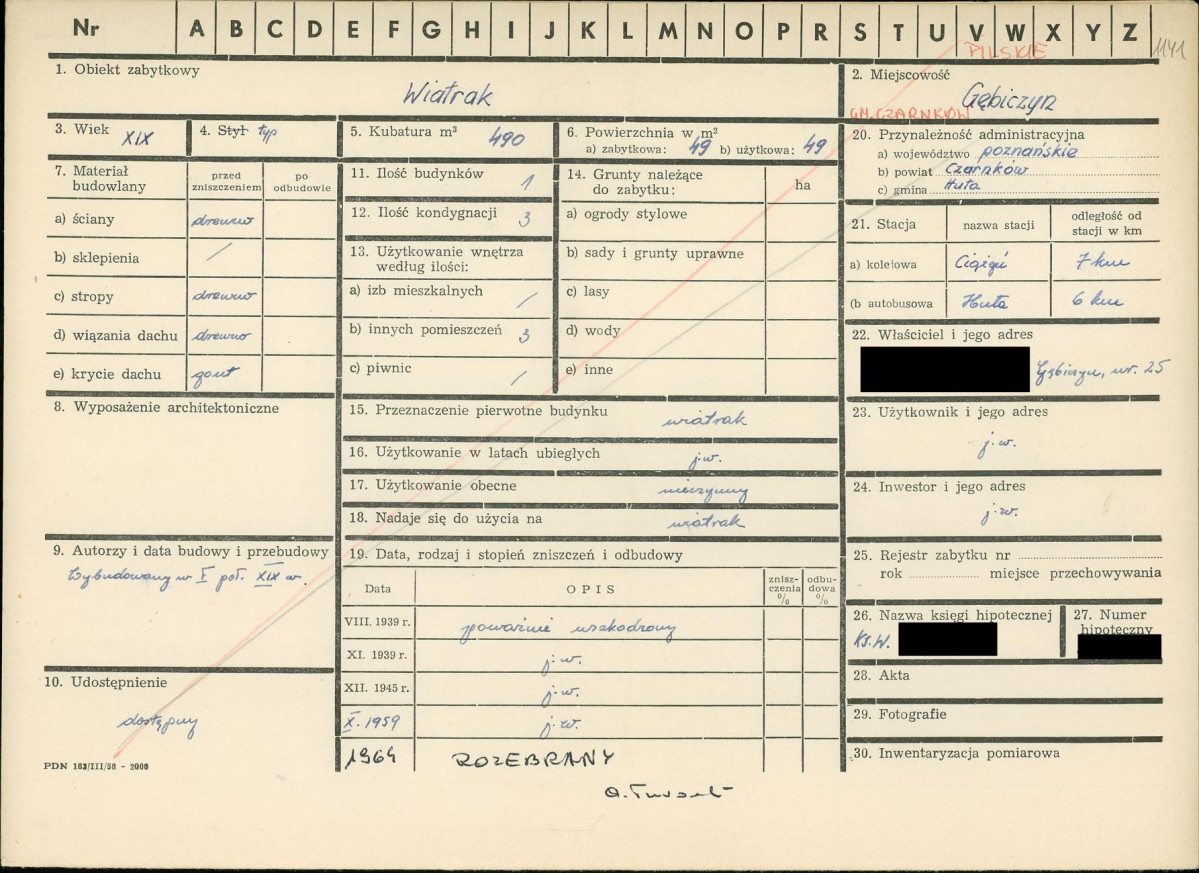 Nr A B C D E F G H I J K L M N O P R S T U V W X Y Z
PILSKIE
1141
1. Obiekt zabytkowy
Wiatrak
2. Miejscowość
Gębiczyn
GM. CZARNKÓW
3. Wiek XIX
4. Styl typ
5. Kubatura m³ 490
6. Powierzchnia w m²
a) zabytkowa: 49 b) użytkowa: 49
20. Przynależność administracyjna
a) województwo poznańskie
b) powiat Czarnków
c) gmina Huta
7. Materiał budowlany
przed zniszczeniem
po odbudowie
a) ściany drewno
b) sklepienia /
c) stropy drewno
d) wiązania dachu drewno
e) krycie dachu gont
11. Ilość budynków 1
12. Ilość kondygnacji 3
13. Użytkowanie wnętrza
według ilości:
a) izb mieszkalnych /
b) innych pomieszczeń 3
c) piwnic /
14. Grunty należące
do zabytku: ha
a) ogrody stylowe
b) sady i grunty uprawne
c) lasy
d) wody
e) inne
21. Stacja
nazwa stacji
odległość od stacji w km
a) kolejowa 7 km
(b autobusowa Huta 6 km
22. Właściciel i jego adres
Gębiczyn, nr. 25
8. Wyposażenie architektoniczne
15. Przeznaczenie pierwotne budynku wiatrak
16. Użytkowanie w latach ubiegłych j.w.
17. Użytkowanie obecne nieczynny
18. Nadaje się do użycia na wiatrak
23. Użytkownik i jego adres
j.w.
24. Inwestor i jego adres
j.w.
9. Autorzy i data budowy i przebudowy
Wybudowany w I poł. XIX w.
19. Data, rodzaj i stopień zniszczeń i odbudowy
Data
OPIS
znisz-
czenia
%
odbu-
dowa
%
VIII. 1939 r. poważnie uszkodzony
XI. 1939 r. j.w.
XII. 1945 r. j.w.
X. 1959 j.w.
1964 ROZEBRANY
25. Rejestr zabytku nr
rok miejsce przechowywania
26. Nazwa księgi hipotecznej
Ks.W.
27. Numer
hipoteczny
28. Akta
29. Fotografie
30. Inwentaryzacja pomiarowa
10. Udostępnienie
dostępny
PDN 183/III/58 - 2000